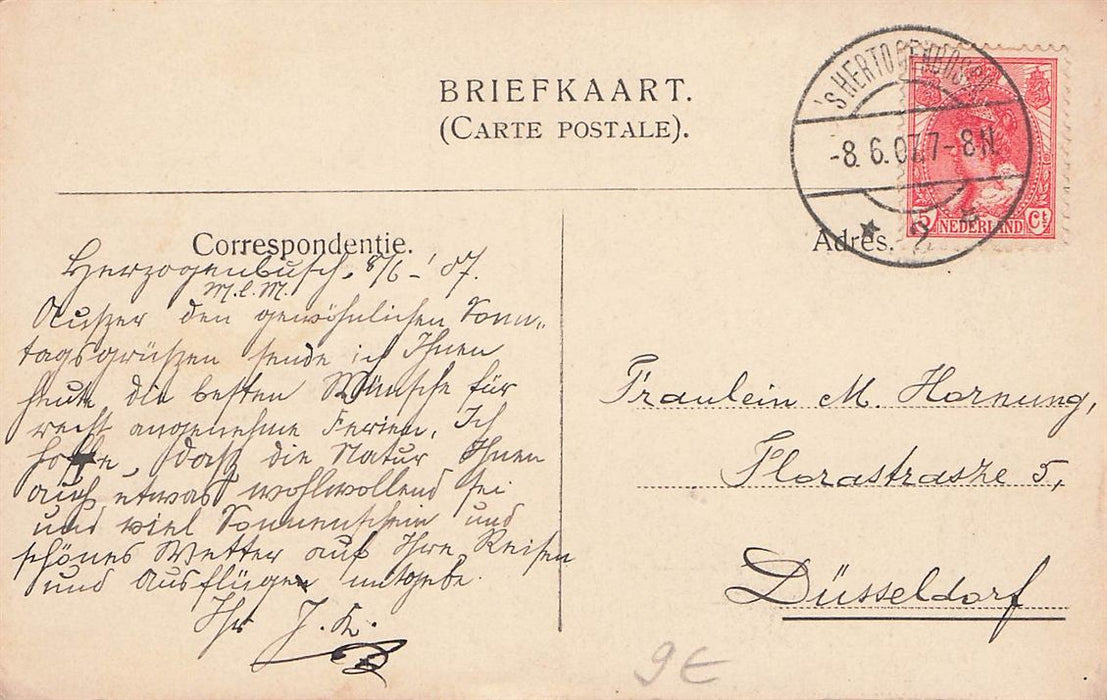 BRIEFKAART.
(CARTE POSTALE).
'S HERTOGENBOSCH
-8.6.07.7-8N.
2
5 NEDERLAND Ct
Correspondentie.
Herzogenbusch, 8/6-'07.
M. l. M.
Außer den gewöhnlichen Sonn„
tagsgrüßen sende ich Ihnen
heute die besten Wünsche für
recht angenehme Ferien. Ich
hoffe, daß die Natur Ihnen
auch etwas wohlwollend sei
und viel Sonnenschein und
schönes Wetter auf Ihre Reisen
und Ausflügen mitgebe.
Ihr J. K.
Adres.
Fraulein M. Hornung,
Florastrasze 5,
Düsseldorf
9 €